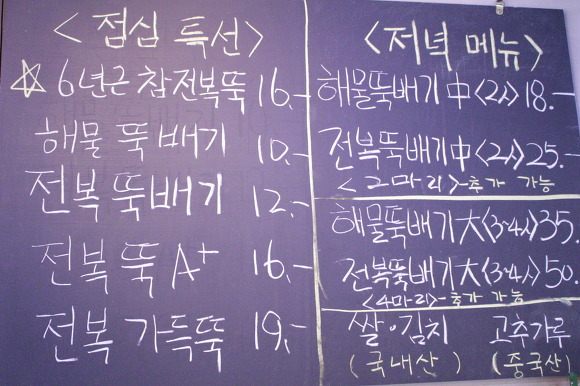 <점심 특선>
☆ 6년근 참전복뚝 16.-
해물 뚝배기 10.-
전복 뚝배기 12.-
전복 뚝 A+ 16.-
전복 가득뚝 19.-
<저녁 메뉴>
해물뚝배기 中<2人> 18.-
전복뚝배기 中<2人> 25.-
<2마리>-추가 가능
해물뚝배기 大<3~4人> 35.
전복뚝배기 大<3~4人> 50.
<4마리>-추가 가능
쌀·김치 고추가루
(국내산) (중국산)